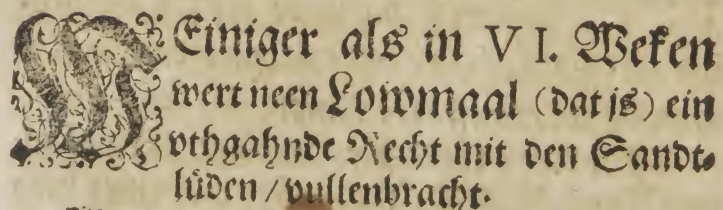 WEiniger als in VI. Weken
wert neen Lowmaal (dat js) ein
vthgahnde Recht mit den Sandt⸗
lüden / vullenbracht.